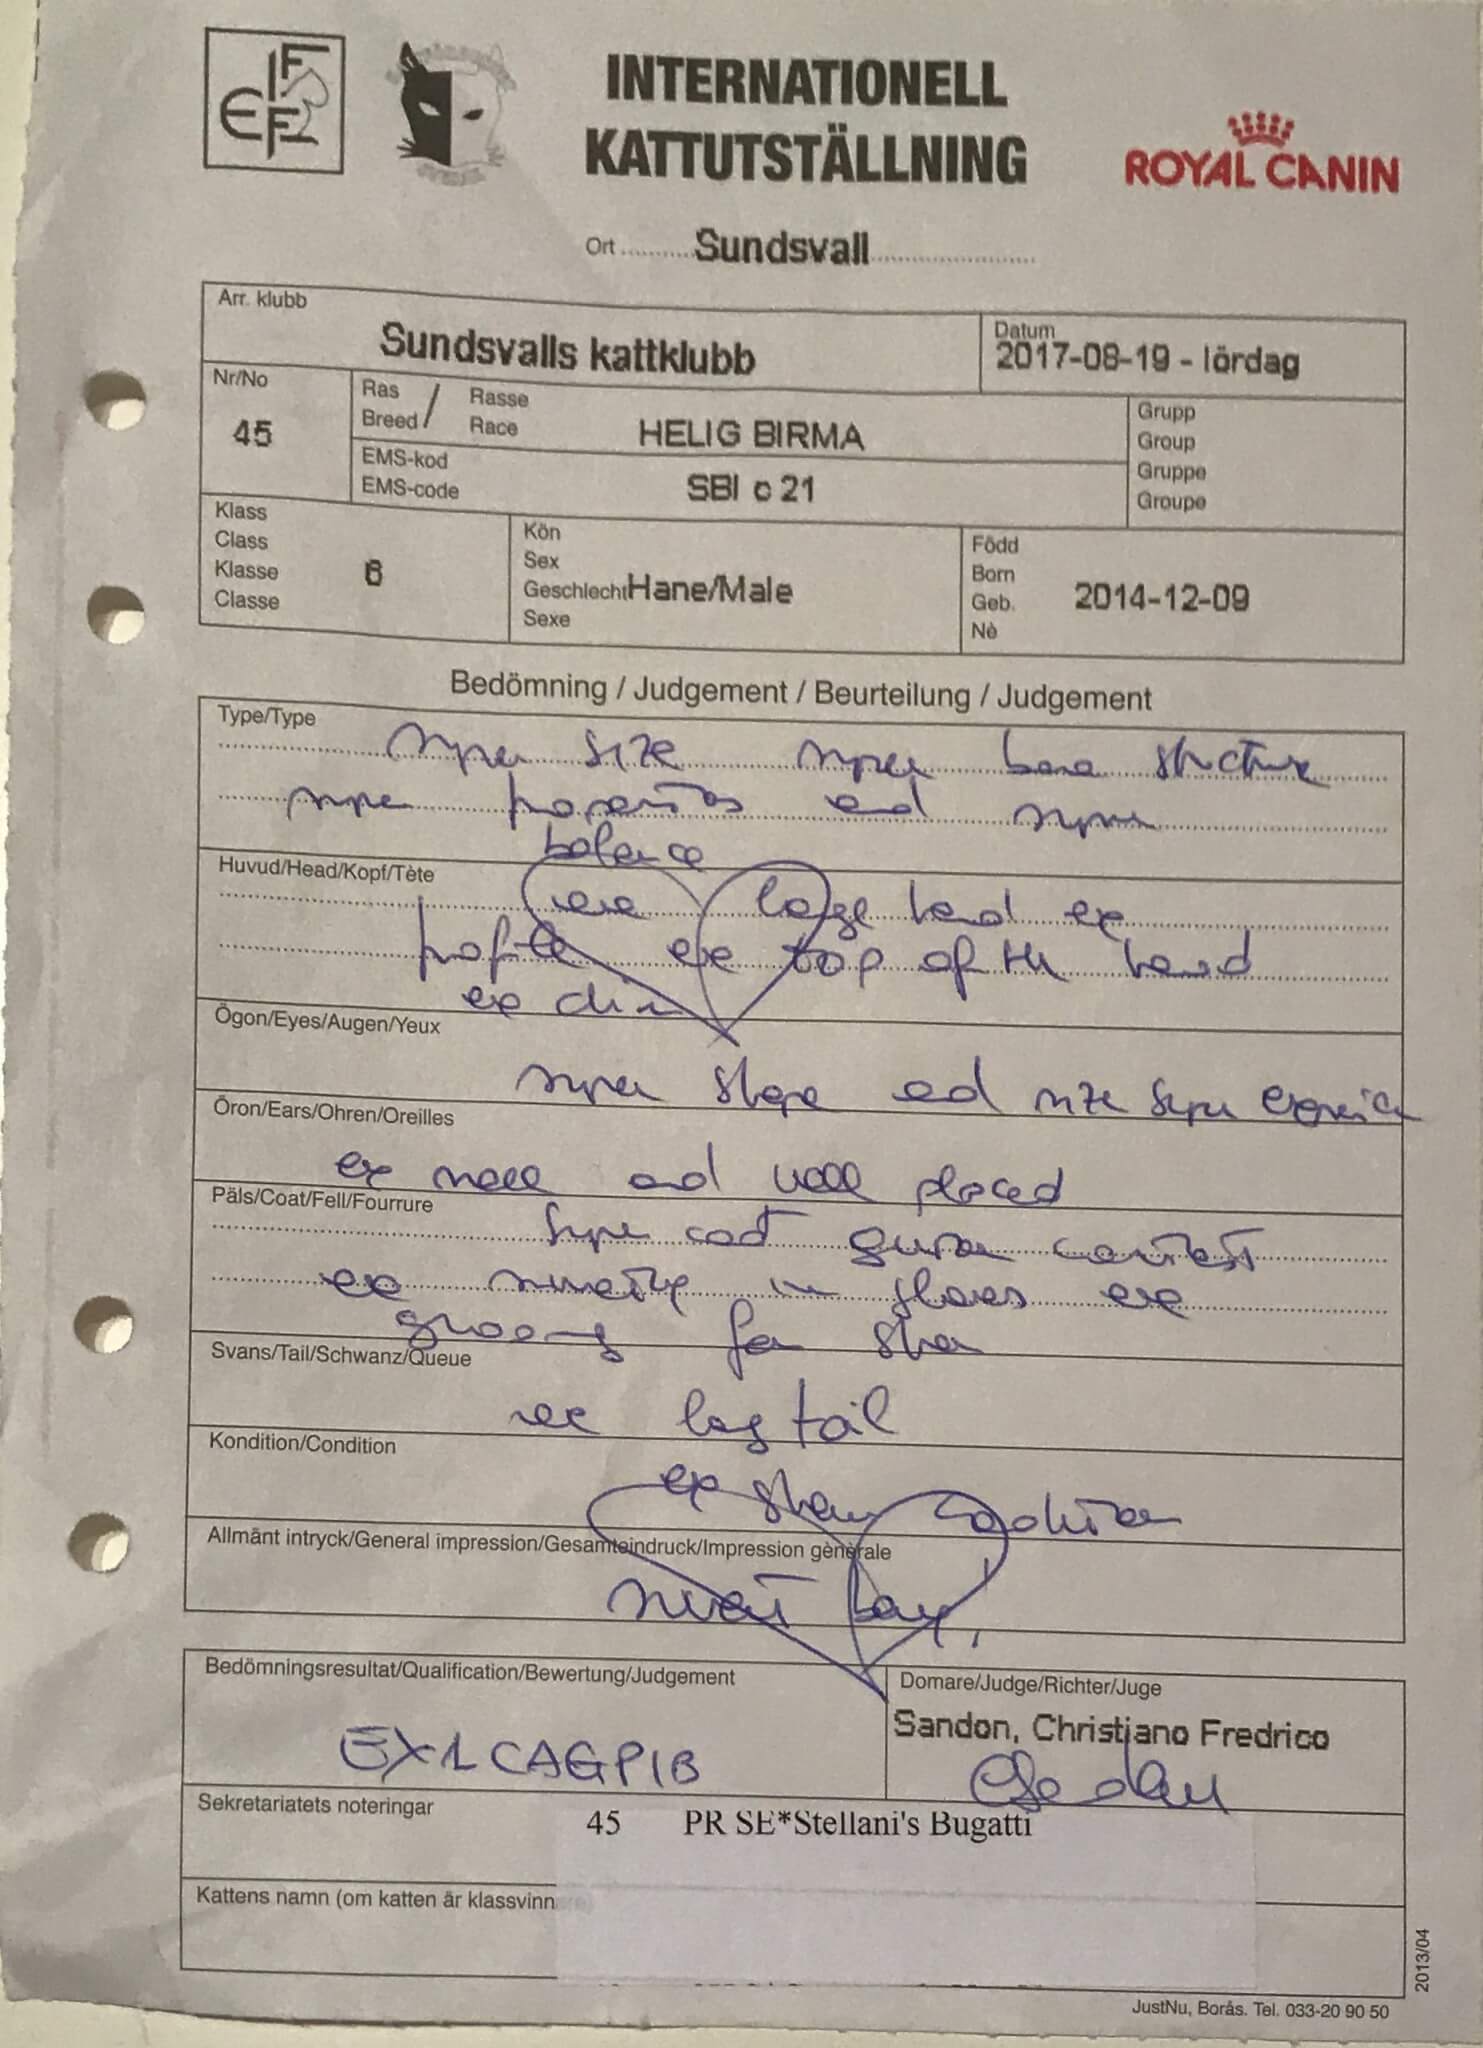 FIFE
INTERNATIONELL
KATTUTSTÄLLNING
ROYAL CANIN
Ort Sundsvall
Arr. klubb
Sundsvalls kattklubb
Datum
2017-08-19 - lördag
Nr/No
45
Ras / Rasse
Breed / Race
HELIG BIRMA
EMS-kod
EMS-code
SBI c 21
Grupp
Group
Gruppe
Groupe
Klass
Class
Klasse
Classe
6
Kön
Sex
Geschlecht Hane/Male
Sexe
Född
Born
Geb.
Nè
2014-12-09
Bedömning / Judgement / Beurteilung / Judgement
Type/Type
super size super bone structure
super and super
balance
Huvud/Head/Kopf/Tète
large head ex
profile ex top of the head
ex chin
Ögon/Eyes/Augen/Yeux
super shape and size super
Öron/Ears/Ohren/Oreilles
ex and well placed
Päls/Coat/Fell/Fourrure
super coat contrast
ex in gloves ex
grooming for show
Svans/Tail/Schwanz/Queue
long tail
Kondition/Condition
ex show condition
Allmänt intryck/General impression/Gesamteindruck/Impression gènèrale
sweet boy!
Bedömningsresultat/Qualification/Bewertung/Judgement
EX1 CAGPIB
Domare/Judge/Richter/Juge
Sandon, Christiano Fredrico
Sekretariatets noteringar
45 PR SE*Stellani's Bugatti
Kattens namn (om katten är klassvinnare)
2013/04
JustNu, Borås. Tel. 033-20 90 50